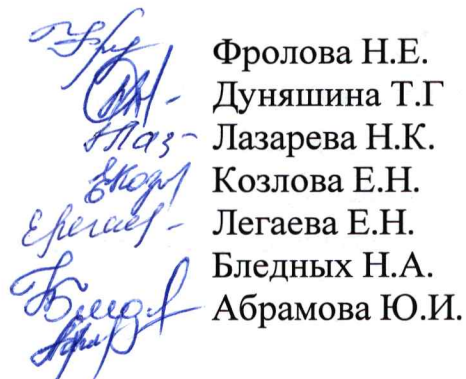 Фролова Н.Е.
Дуняшина Т.Г
Лазарева Н.К.
Козлова Е.Н.
Легаева Е.Н.
Бледных Н.А.
Абрамова Ю.И.